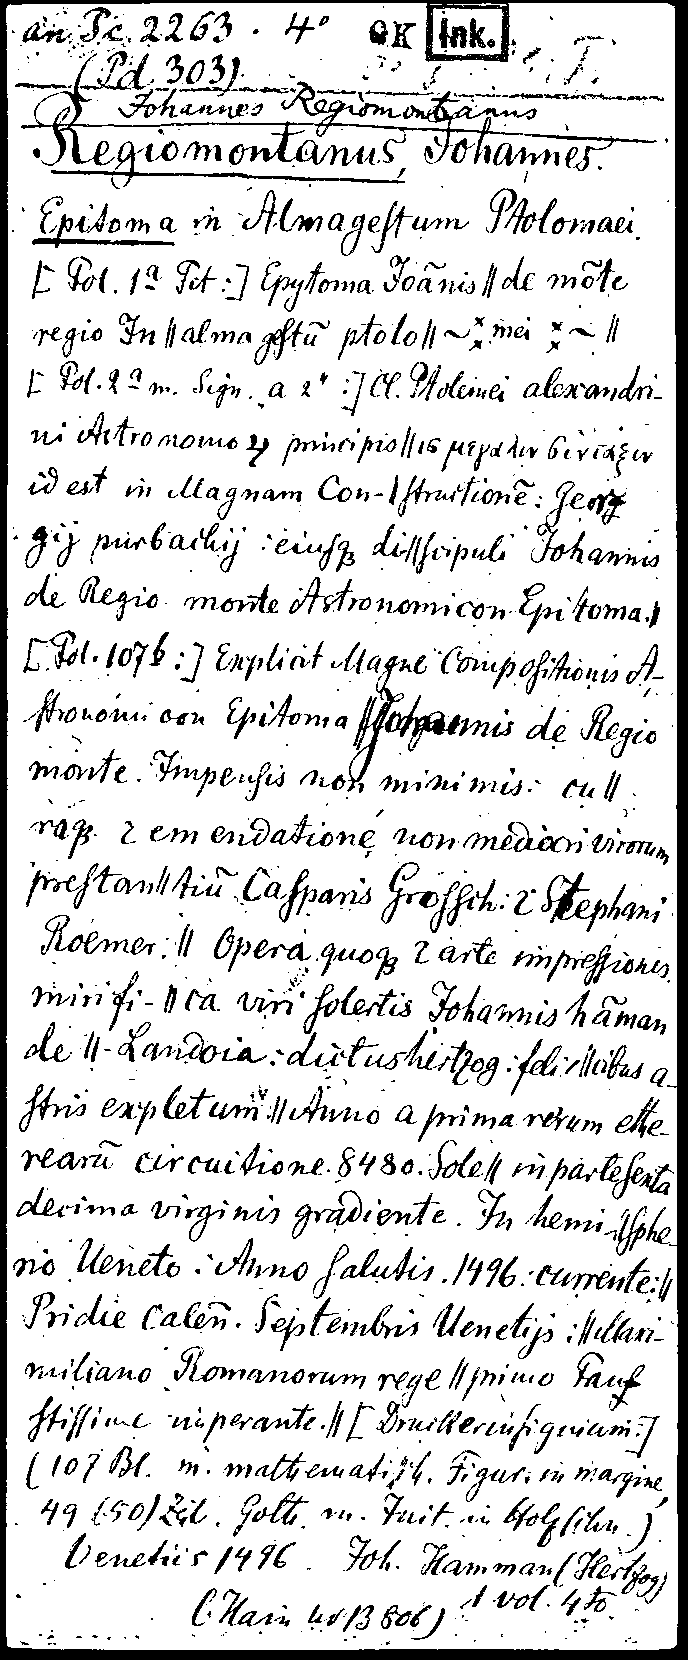 an Tc 2263 . 4° OK Ink.
(Pd 303)
Johannes Regiomontanus
Regiomontanus, Johannes.
Epitoma in Almagestum Ptolomaei.
[Fol. 1ª Tit:] Epytoma Joānis || de mōte
regio In || almagestū ptolo || ~ mei ~ ||
[Fol. 2ª m. Sign. a 2 :] Cl. Ptolemei alexandri-
ni Astronomoꝝ principis || ις μεγαλιν σινταξιν
id est in Magnam Con- || structionē: Geor
gij purbachij : eiusqꝫ di || scipuli Johannis
de Regio monte Astronomicon Epitoma. ||
[Fol. 107b:] Explicit Magne Compositionis A-
stronomicon Epitoma || Johannis de Regio
monte. Impensis non minimis: cu ||
raqꝫ ⁊ emendatione non mediocri virorum
prestan || tiū Casparis Grossch: ⁊ Stephani
Roemer. || Opera quoqꝫ ⁊ arte impressionis
mirifi- || ca viri solertis Johannis hāman
de || Landoia : dictus hertzog : feli || cibus a-
stris expletum || Anno a prima rerum ethe-
rearū circuitione. 8480. Sole || in parte sexta
decima virginis gradiente. In hemi || sphe-
rio Ueneto : Anno salutis. 1496. currente: ||
Pridie Caleñ. Septembris Uenetijs : || Maxi-
miliano Romanorum rege || primo Fau
stissime imperante. || [Druckerinsignium.]
(107 Bl. m. mathematisch. Figur. in margine,
49 (50) Zeil. Goth. m. Init. in Holzschn.)
Venetiis 1496 Joh. Hamman (Hertzog)
1 vol. 4to
(Hain 13806)